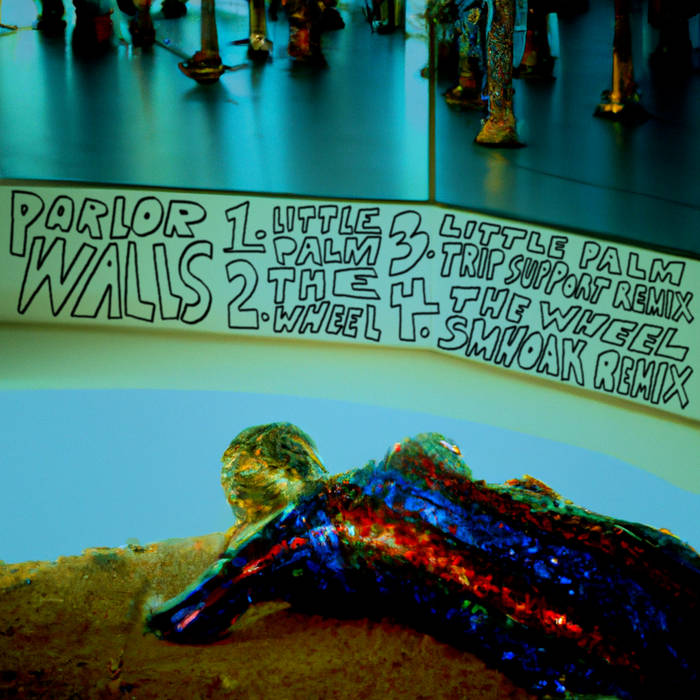 PARLOR
WALLS
1. LITTLE
PALM
2. THE
WHEEL
3. LITTLE PALM
TRIP SUPPORT REMIX
4. THE WHEEL
SMHOAK REMIX